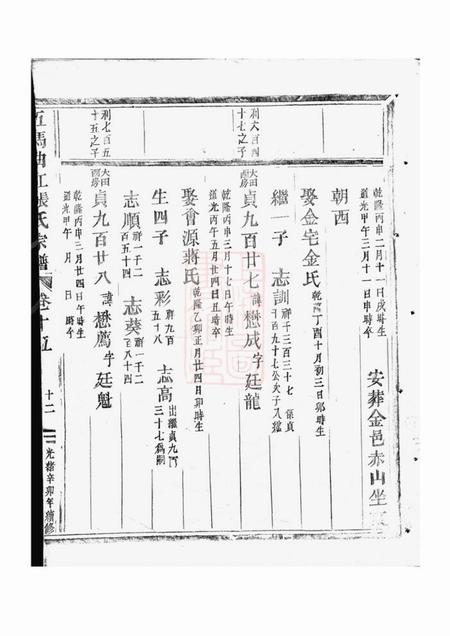 乾隆丙申二月十一日戌時生
道光甲午三月十一日申時卒
安葬金邑赤山坐
朝西
娶金宅金氏
乾隆丁酉十月初三日卯時生
繼一子 志訓
祥千三百三十七 係貞
百九十七公次子入繼
利六百四
十七之子
大田
西房
貞九百廿七
諱懋成字廷龍
乾隆丙申三月十七日午時生
道光丙午五月廿四日丑時卒
娶會源蔣氏
乾隆乙卯正月廿四日卯時生
生四子 志彩
祥九百
五十八
志高
出繼貞九百
三十七為嗣
志順
祥一千二
百五十四
志葵
祥一千二
百八十四
利七百五
十五之子
大田
西房
貞九百廿八
諱懋薦字廷魁
乾隆丙申三月廿四日 時生
道光甲午 月 日 時卒
張氏宗譜
卷十五
十二
光緒辛卯年續修